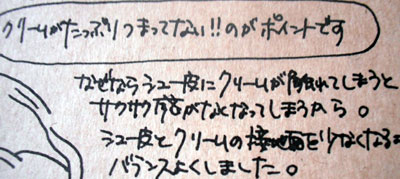 クリームがたっぷりつまってない!!のがポイントです
なぜならシュー皮にクリームが触れてしまうと
サクサク感がなくなってしまうから。
シュー皮とクリームの接地面を少なくなる
バランスよくしました。